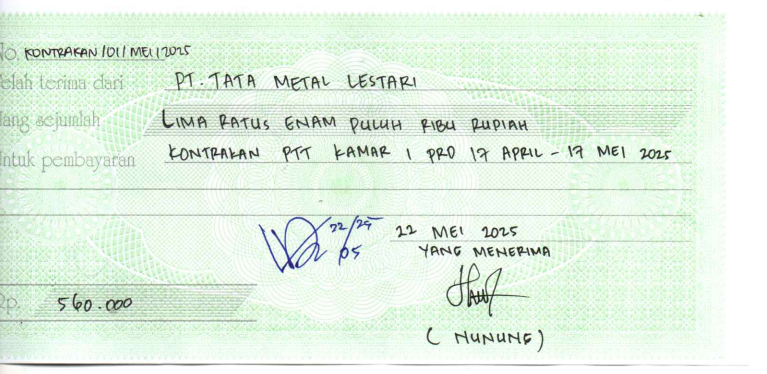 No. KONTRAKAN/01/MEI/2025
elah terima dari PT. TATA METAL LESTARI
ang sejumlah LIMA RATUS ENAM PULUH RIBU RUPIAH
ntuk pembayaran KONTRAKAN PTT KAMAR 1 PRD 17 APRIL - 17 MEI 2025
22/25
/05
22 MEI 2025
YANG MENERIMA
Rp. 560.000
( NUNUNG )